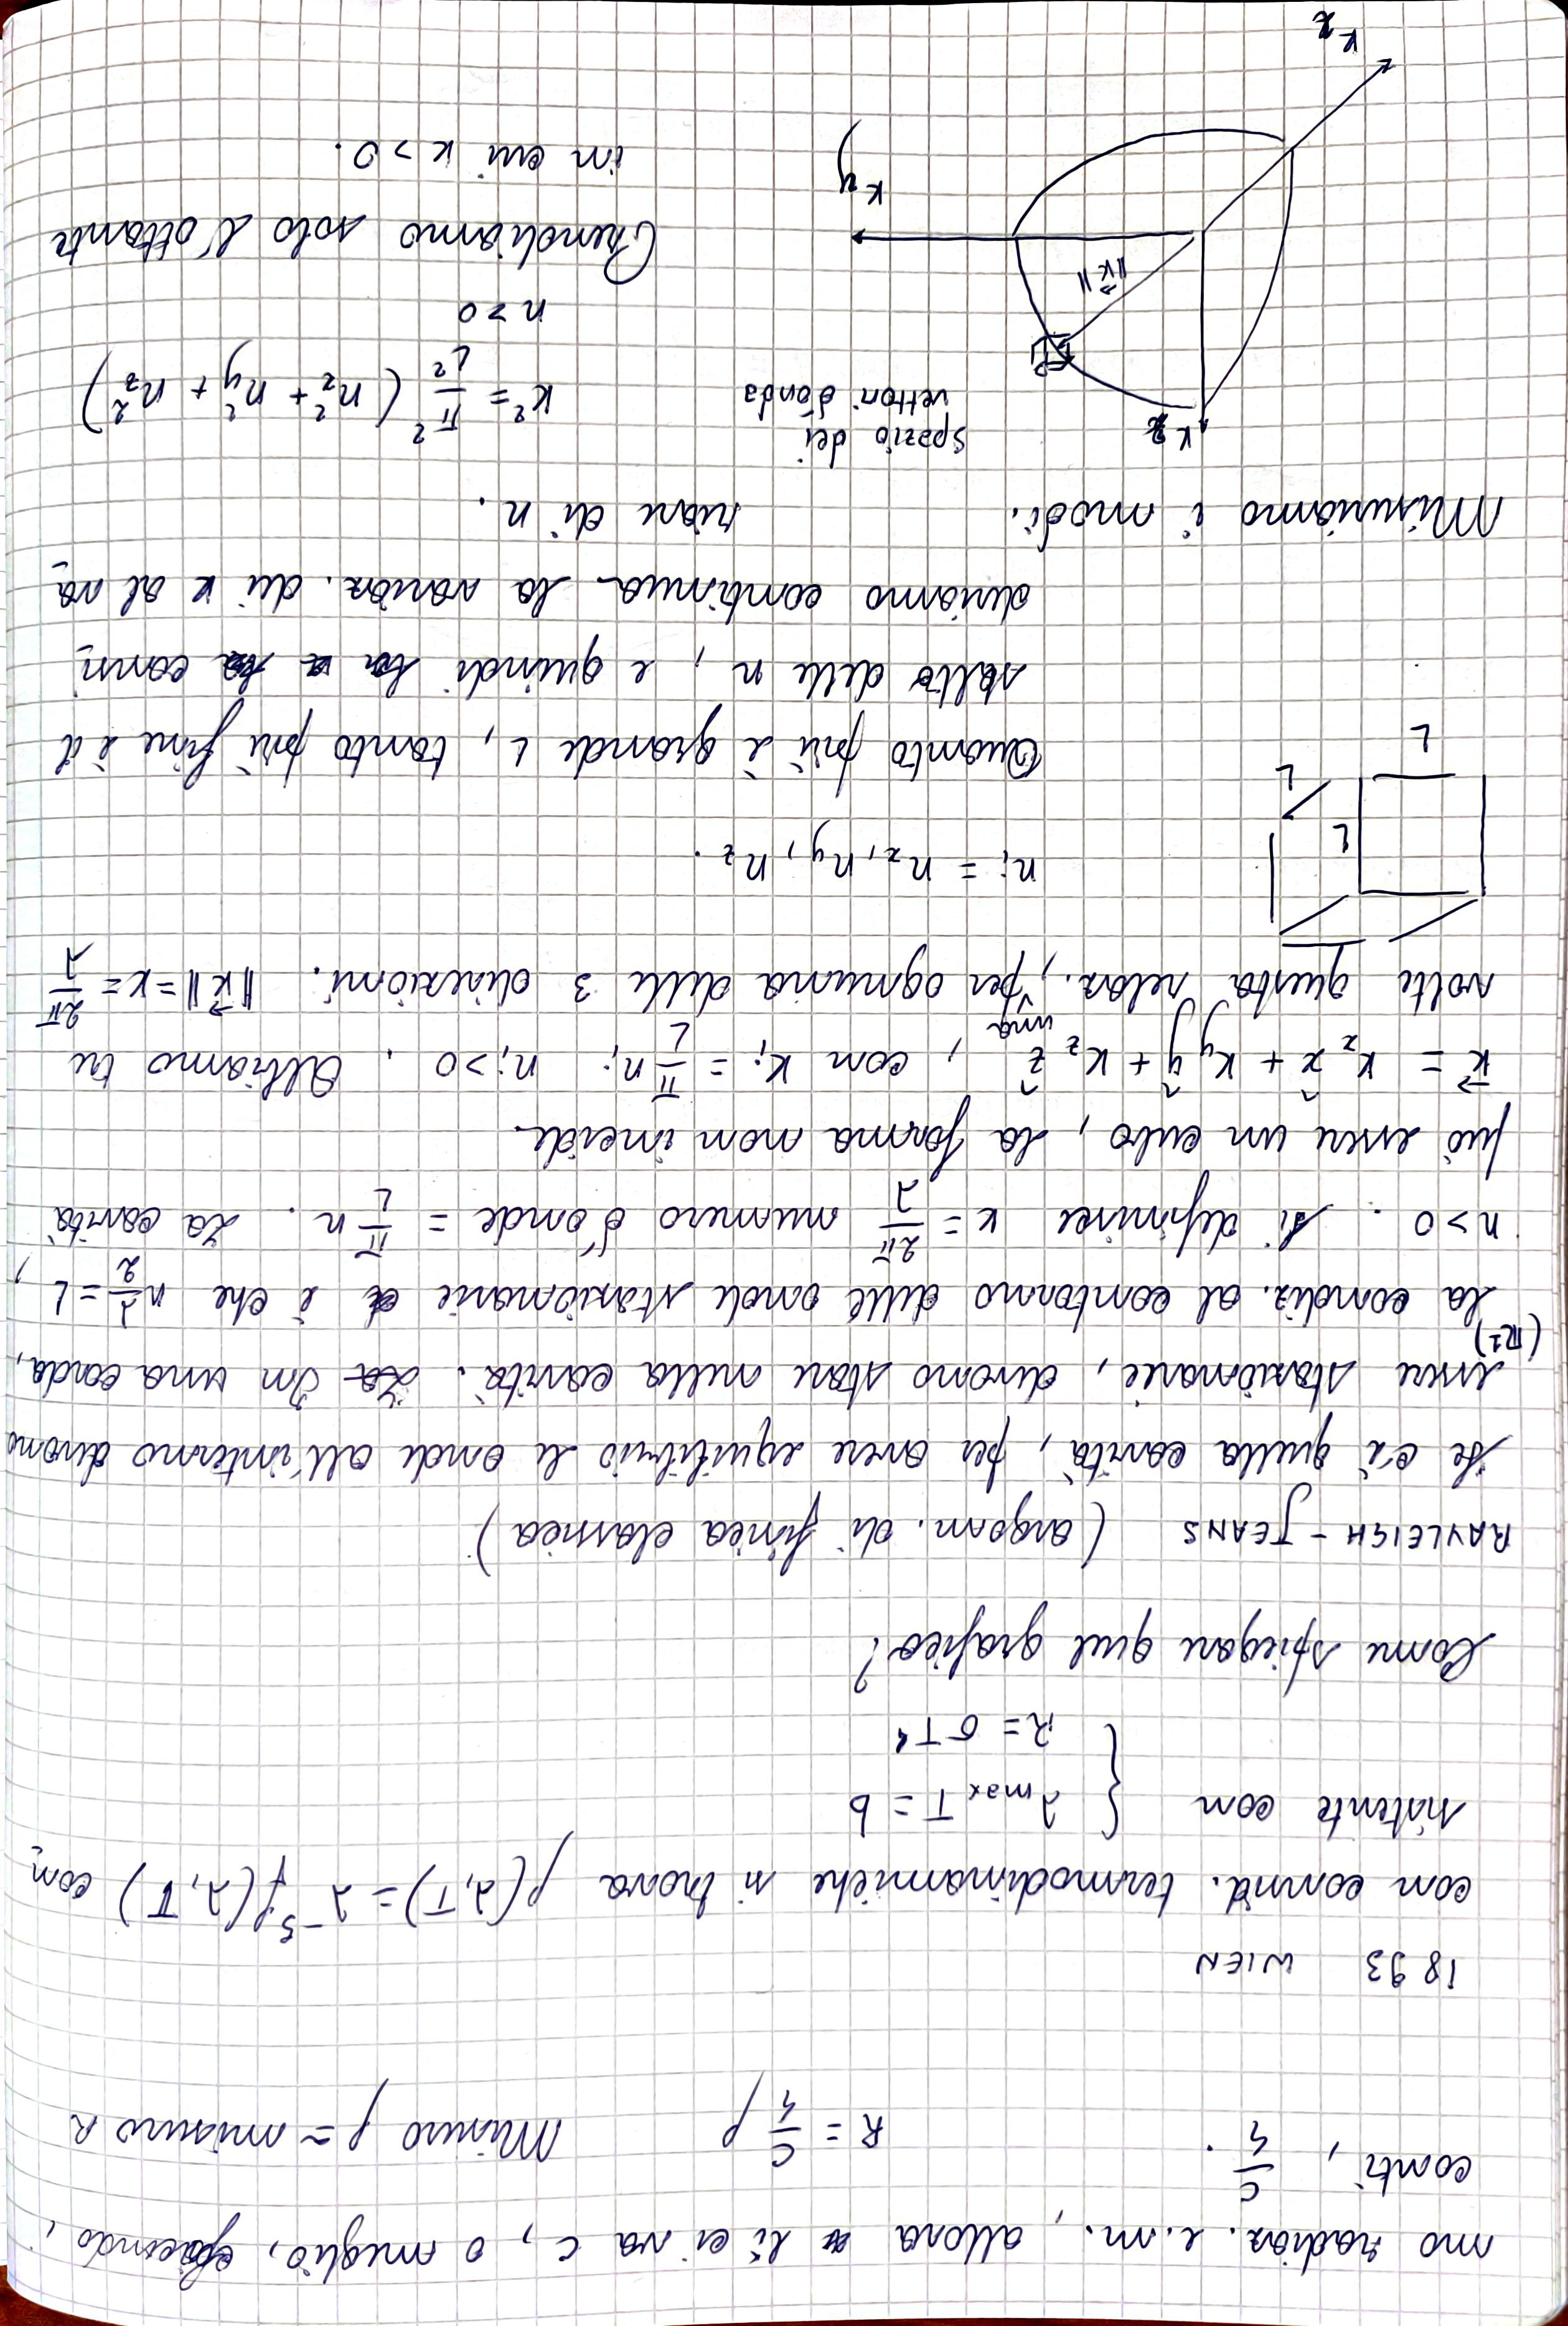 mo radiaz. e.m., allora lì ci va c, o meglio, facendo i
conti, c/4.
R = c/4 ρ   Misuro ρ ≃ misuro R
1893 WIEN
con consid. termodinamiche si trova ρ(λ,T) = λ⁻⁵ f(λ,T) con-
sistente con { λmax T = b
R = σT⁴
Come spiegare quel grafico?
RAYLEIGH - JEANS (argom. di fisica classica)
Se c'è quella cavità, per avere equilibrio le onde all'interno devono
essere stazionarie, devono stare nella cavità. In una corda,
(ℝ¹)
la condiz. al contorno delle onde stazionarie è che n λ/2 = L,
n>0. Si definisce k = 2π/λ numero d'onde = π/L n. La cavità
può essere un cubo, la forma non incide.
k⃗ = kx x̂ + ky ŷ + kz ẑ, con ki = π/L ni   ni>0. Abbiamo tre
volte questa relaz., una per ognuna delle 3 direzioni. ‖k⃗‖ = k = 2π/λ
L
L
L
ni = nx, ny, nz.
Quanto più è grande L, tanto più fine è il
salto delle n, e quindi consi-
deriamo continua la variaz. dei k al va-
riare di n.
Misuriamo i modi.
kz
spazio dei
vettori d'onda
‖k⃗‖
ky
kx
k² = π²/L² (nx² + ny² + nz²)
n ≥ 0
Prendiamo solo l'ottante
in cui k > 0.